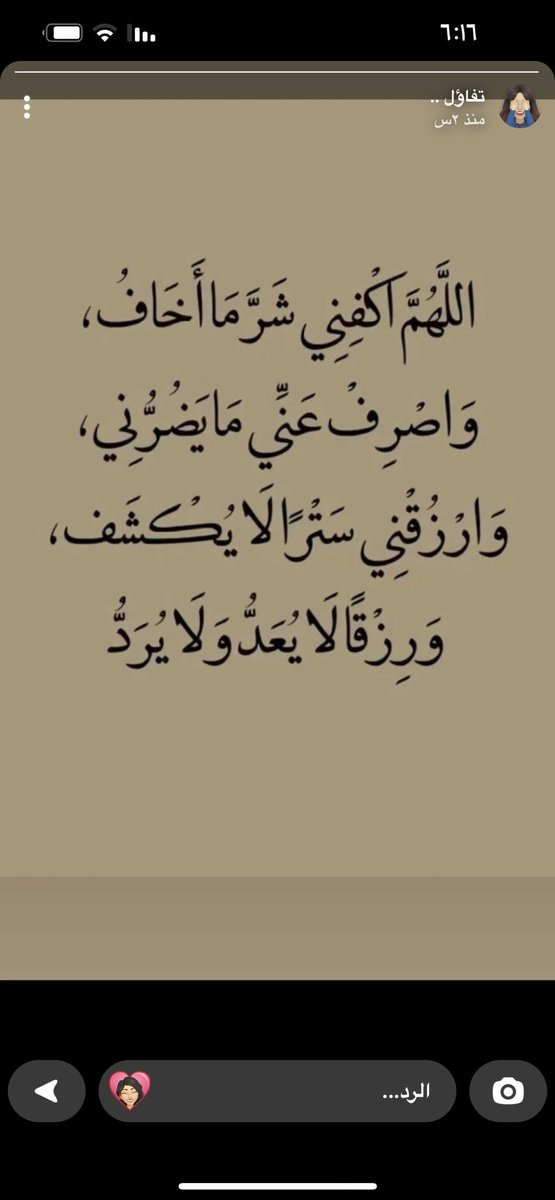 ٦:١٦
تفاؤل ..
منذ ٢س
اللَّهُمَّ اكْفِنِي شَرَّ مَا أَخَافُ،
وَاصْرِفْ عَنِّي مَا يَضُرُّنِي،
وَارْزُقْنِي سَتْرًا لَا يُكْشَف،
وَرِزْقًا لَا يُعَدُّ وَلَا يُرَدُّ
الرد...